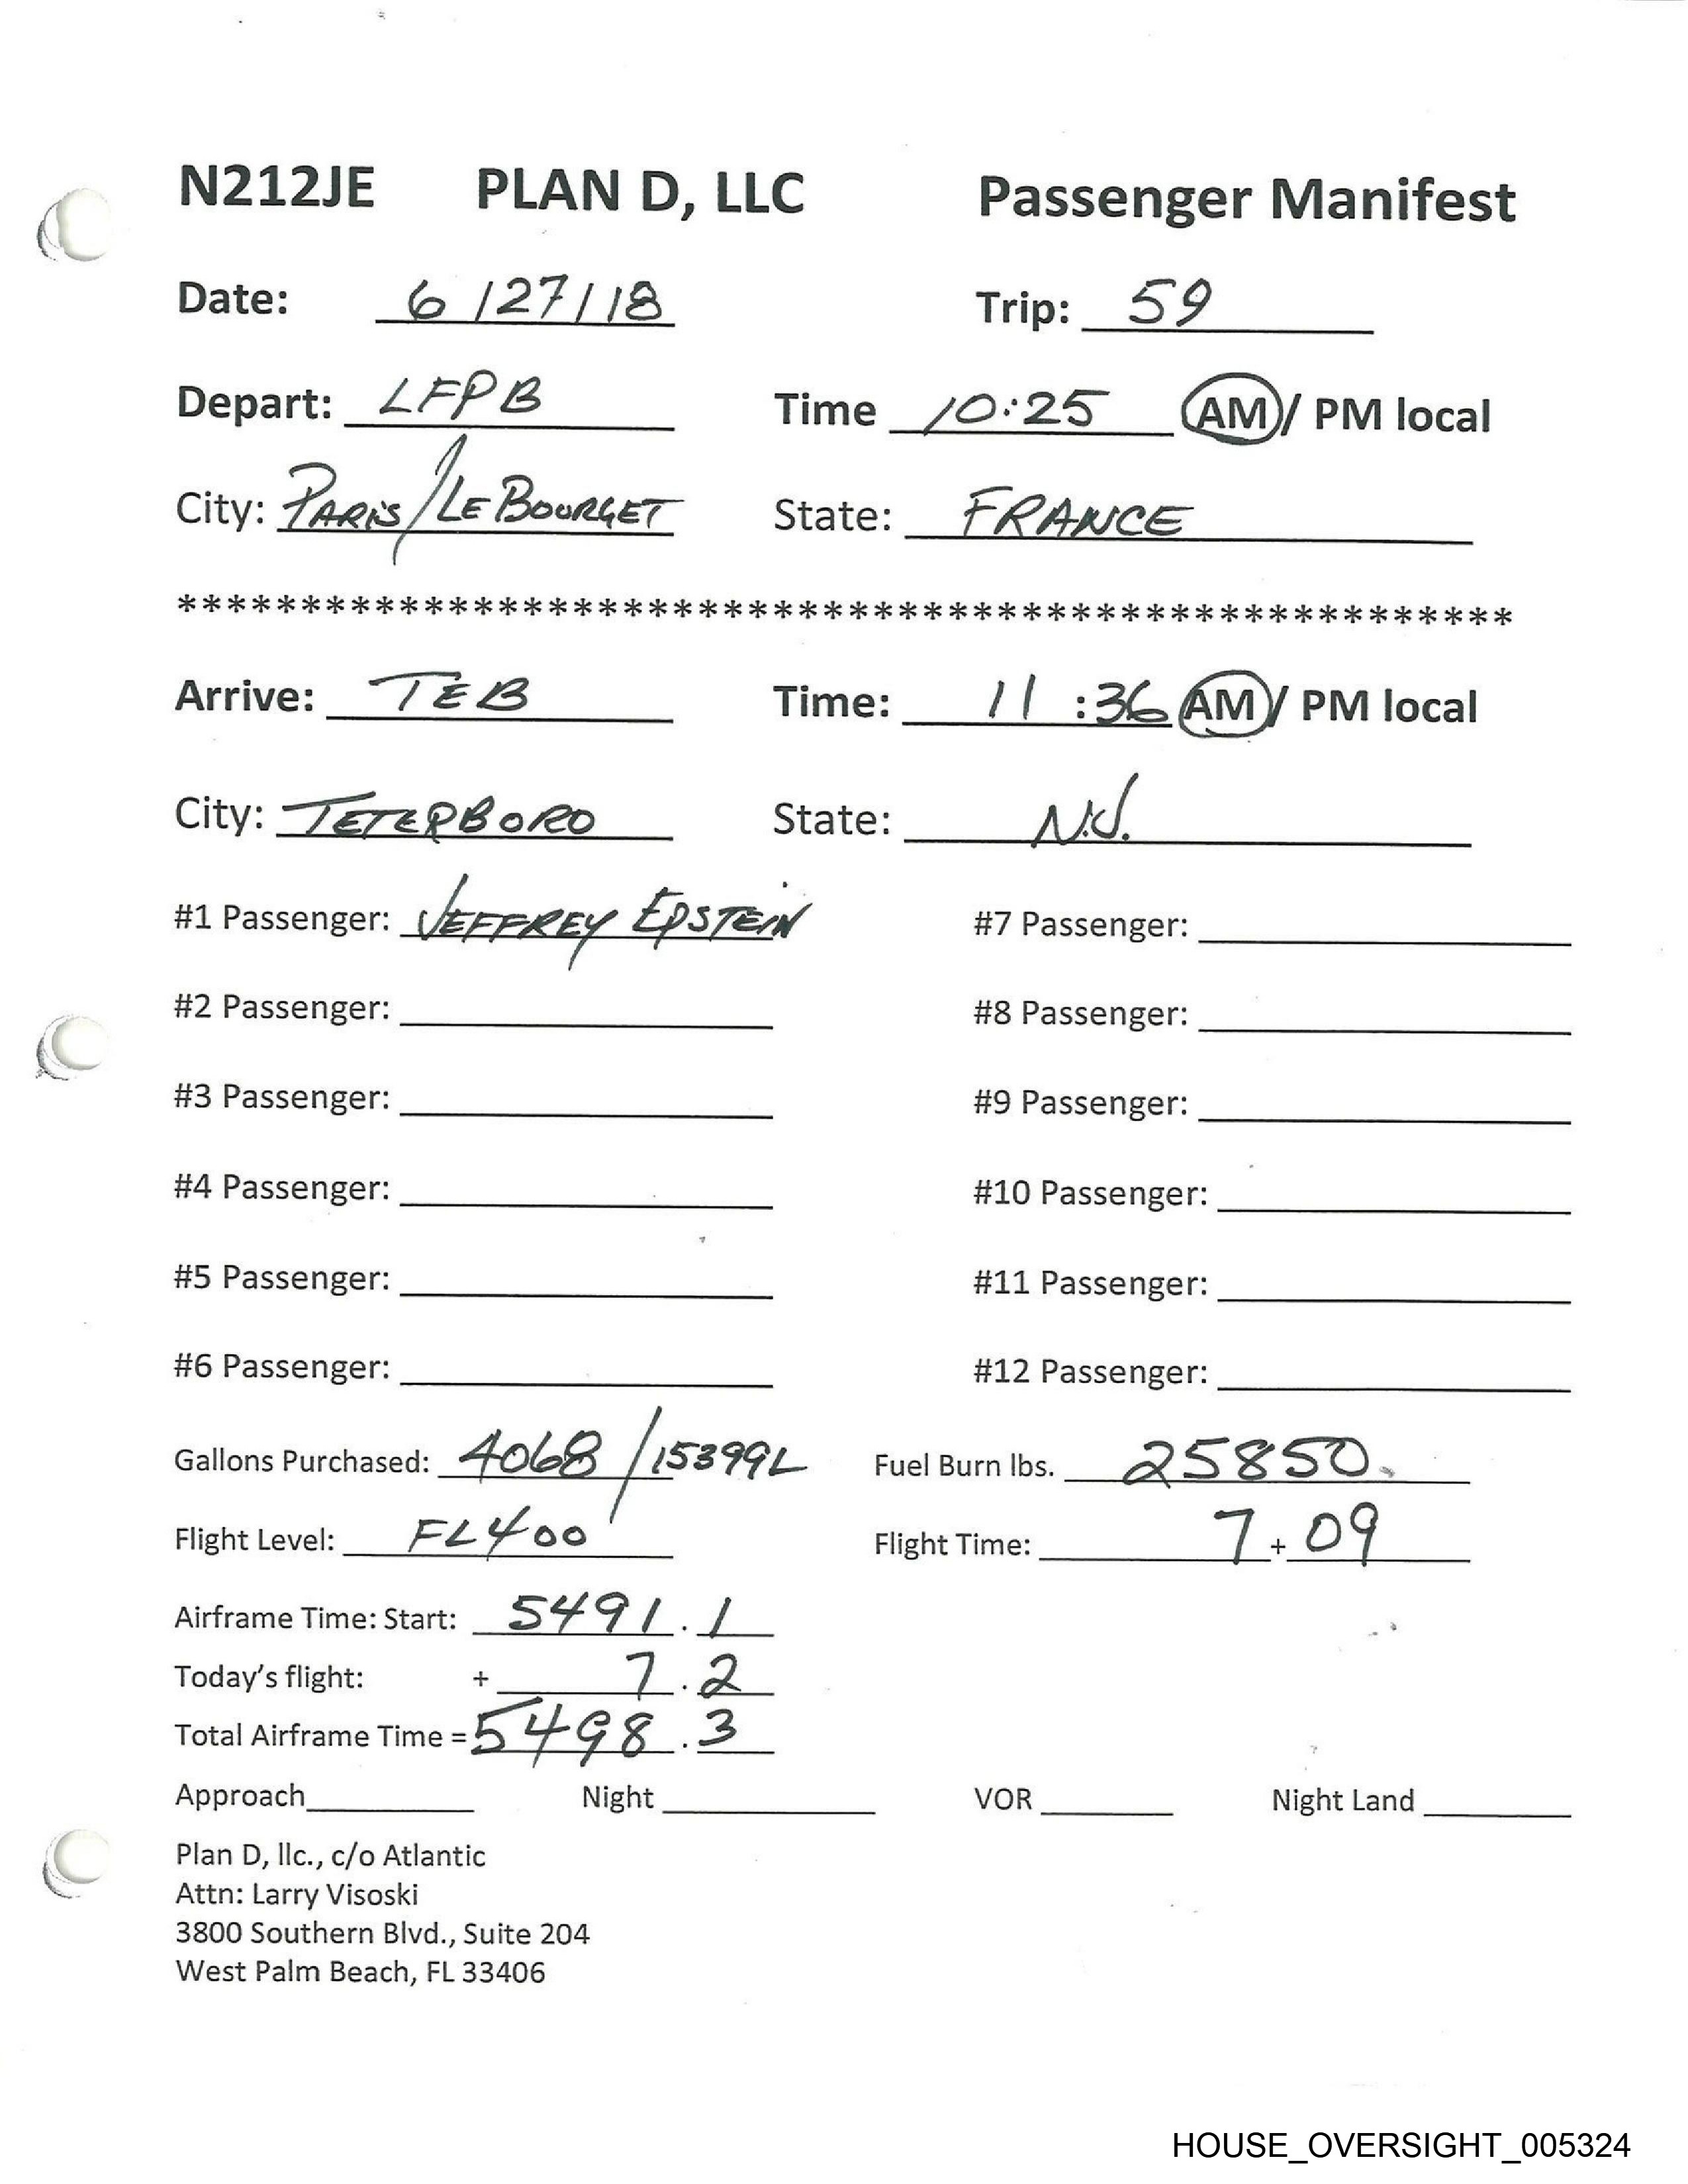 N212JE PLAN D, LLC Passenger Manifest
Date: 6/27/18 Trip: 59
Depart: LFPB Time 10:25 AM / PM local
City: PARIS/LE BOURGET State: FRANCE
******************************************************
Arrive: TEB Time: 11:36 AM / PM local
City: TETERBORO State: N.J.
#1 Passenger: JEFFREY EPSTEIN #7 Passenger:
#2 Passenger: #8 Passenger:
#3 Passenger: #9 Passenger:
#4 Passenger: #10 Passenger:
#5 Passenger: #11 Passenger:
#6 Passenger: #12 Passenger:
Gallons Purchased: 4068 / 15399L Fuel Burn lbs. 25850.
Flight Level: FL400 Flight Time: 7 + 09
Airframe Time: Start: 5491.1
Today's flight: + 7.2
Total Airframe Time = 5498.3
Approach Night VOR Night Land
Plan D, llc., c/o Atlantic
Attn: Larry Visoski
3800 Southern Blvd., Suite 204
West Palm Beach, FL 33406
HOUSE_OVERSIGHT_005324